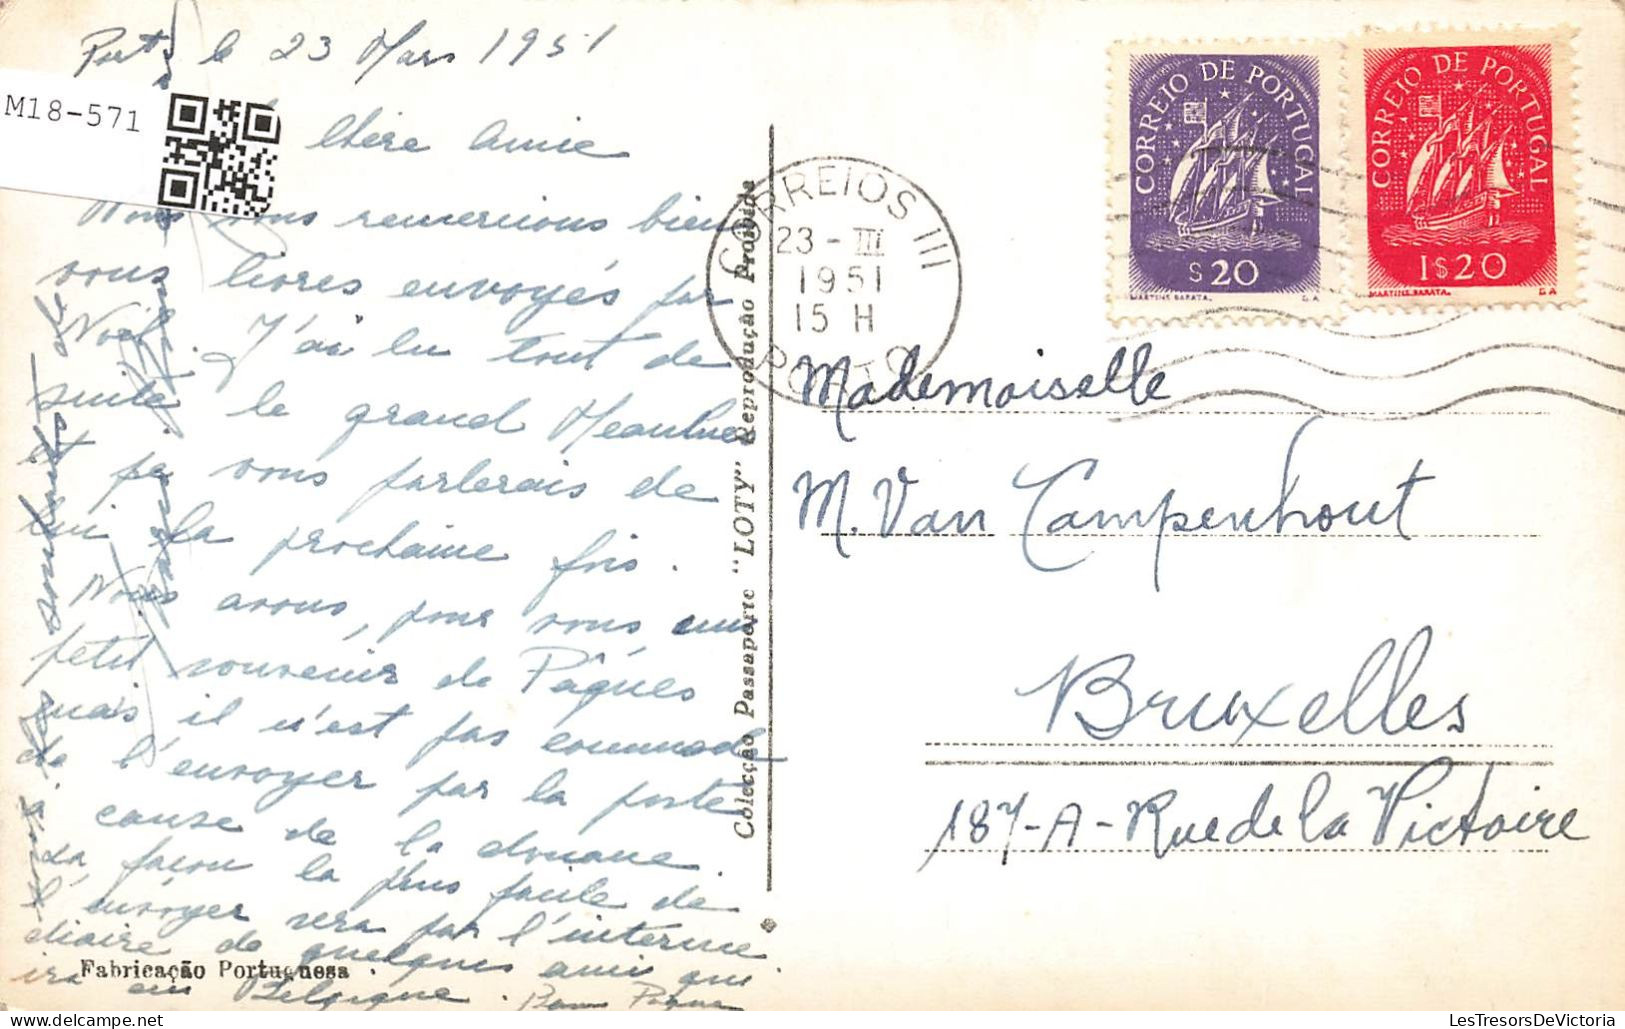 Porto le 23 Mars 1951
M18-571
Chère Amie
Nous vous remercions bien
vous livres envoyés par
Noël. J'ai lu tout de
suite le grand Meaulnes
et je vous parlerais de
lui la prochaine fois.
Nous avons, pour vous un
petit souvenir de Pâques
mais il n'est pas commode
de l'envoyer par la poste
à cause de la douane.
La façon la plus facile de
l'envoyer sera par l'interme
diaire de quelques amis qui
ira en Belgique. Bonn Pâques
Fabricação Portuguesa
souhaits de
Colecção Passaporte "LOTY" Reprodução Proibida
CORREIOS III
23-III
1951
15 H
PORTO
CORREIO DE PORTUGAL
$20
MARTINS BARATA.
CORREIO DE PORTUGAL
1$20
MARTINS BARATA.
Mademoiselle
M. Van Campenhout
Bruxelles
187-A-Rue de la Victoire
LesTresorsDeVictoria